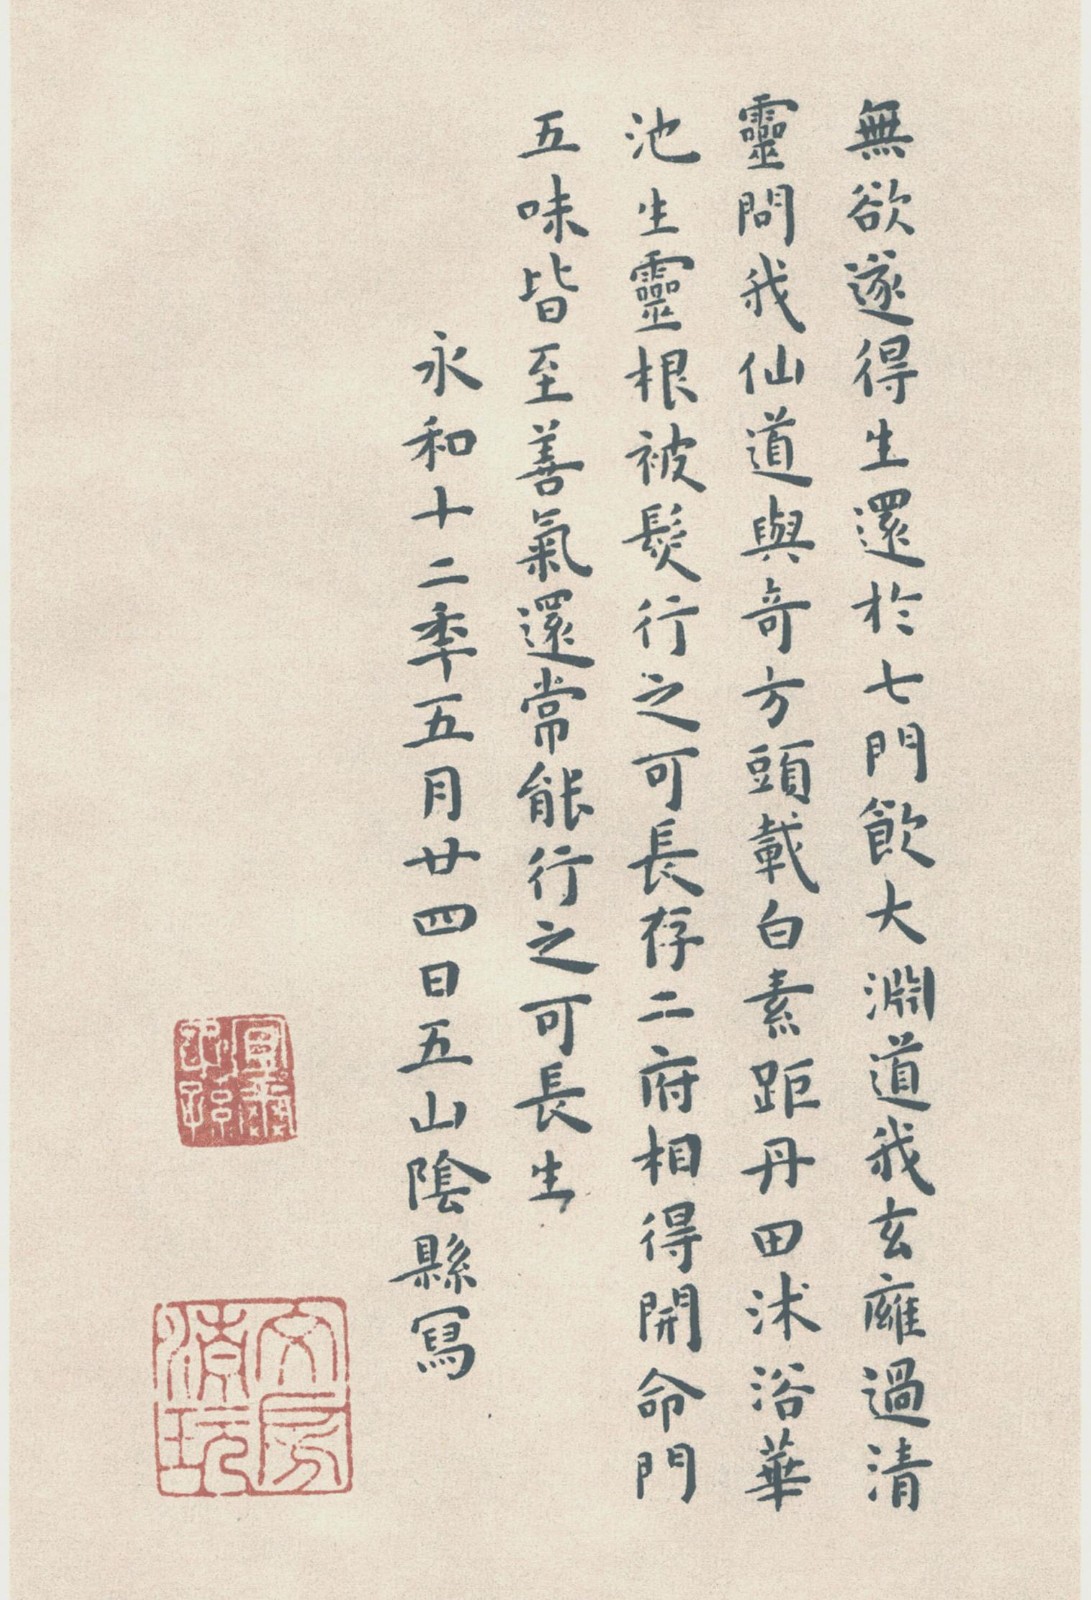 無欲遂得生還於七門飲大淵道我玄廱過清
靈問我仙道與奇方頭載白素距丹田沐浴華
池生靈根被髮行之可長存二府相得開命門
五味皆至善氣還常能行之可長生
永和十二年五月廿四日五山陰縣寫
文房清玩